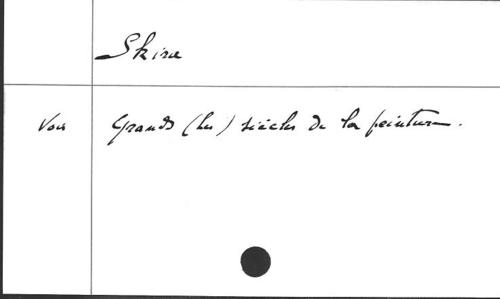 Skira
Voir Grands (les) siècles de la peinture.